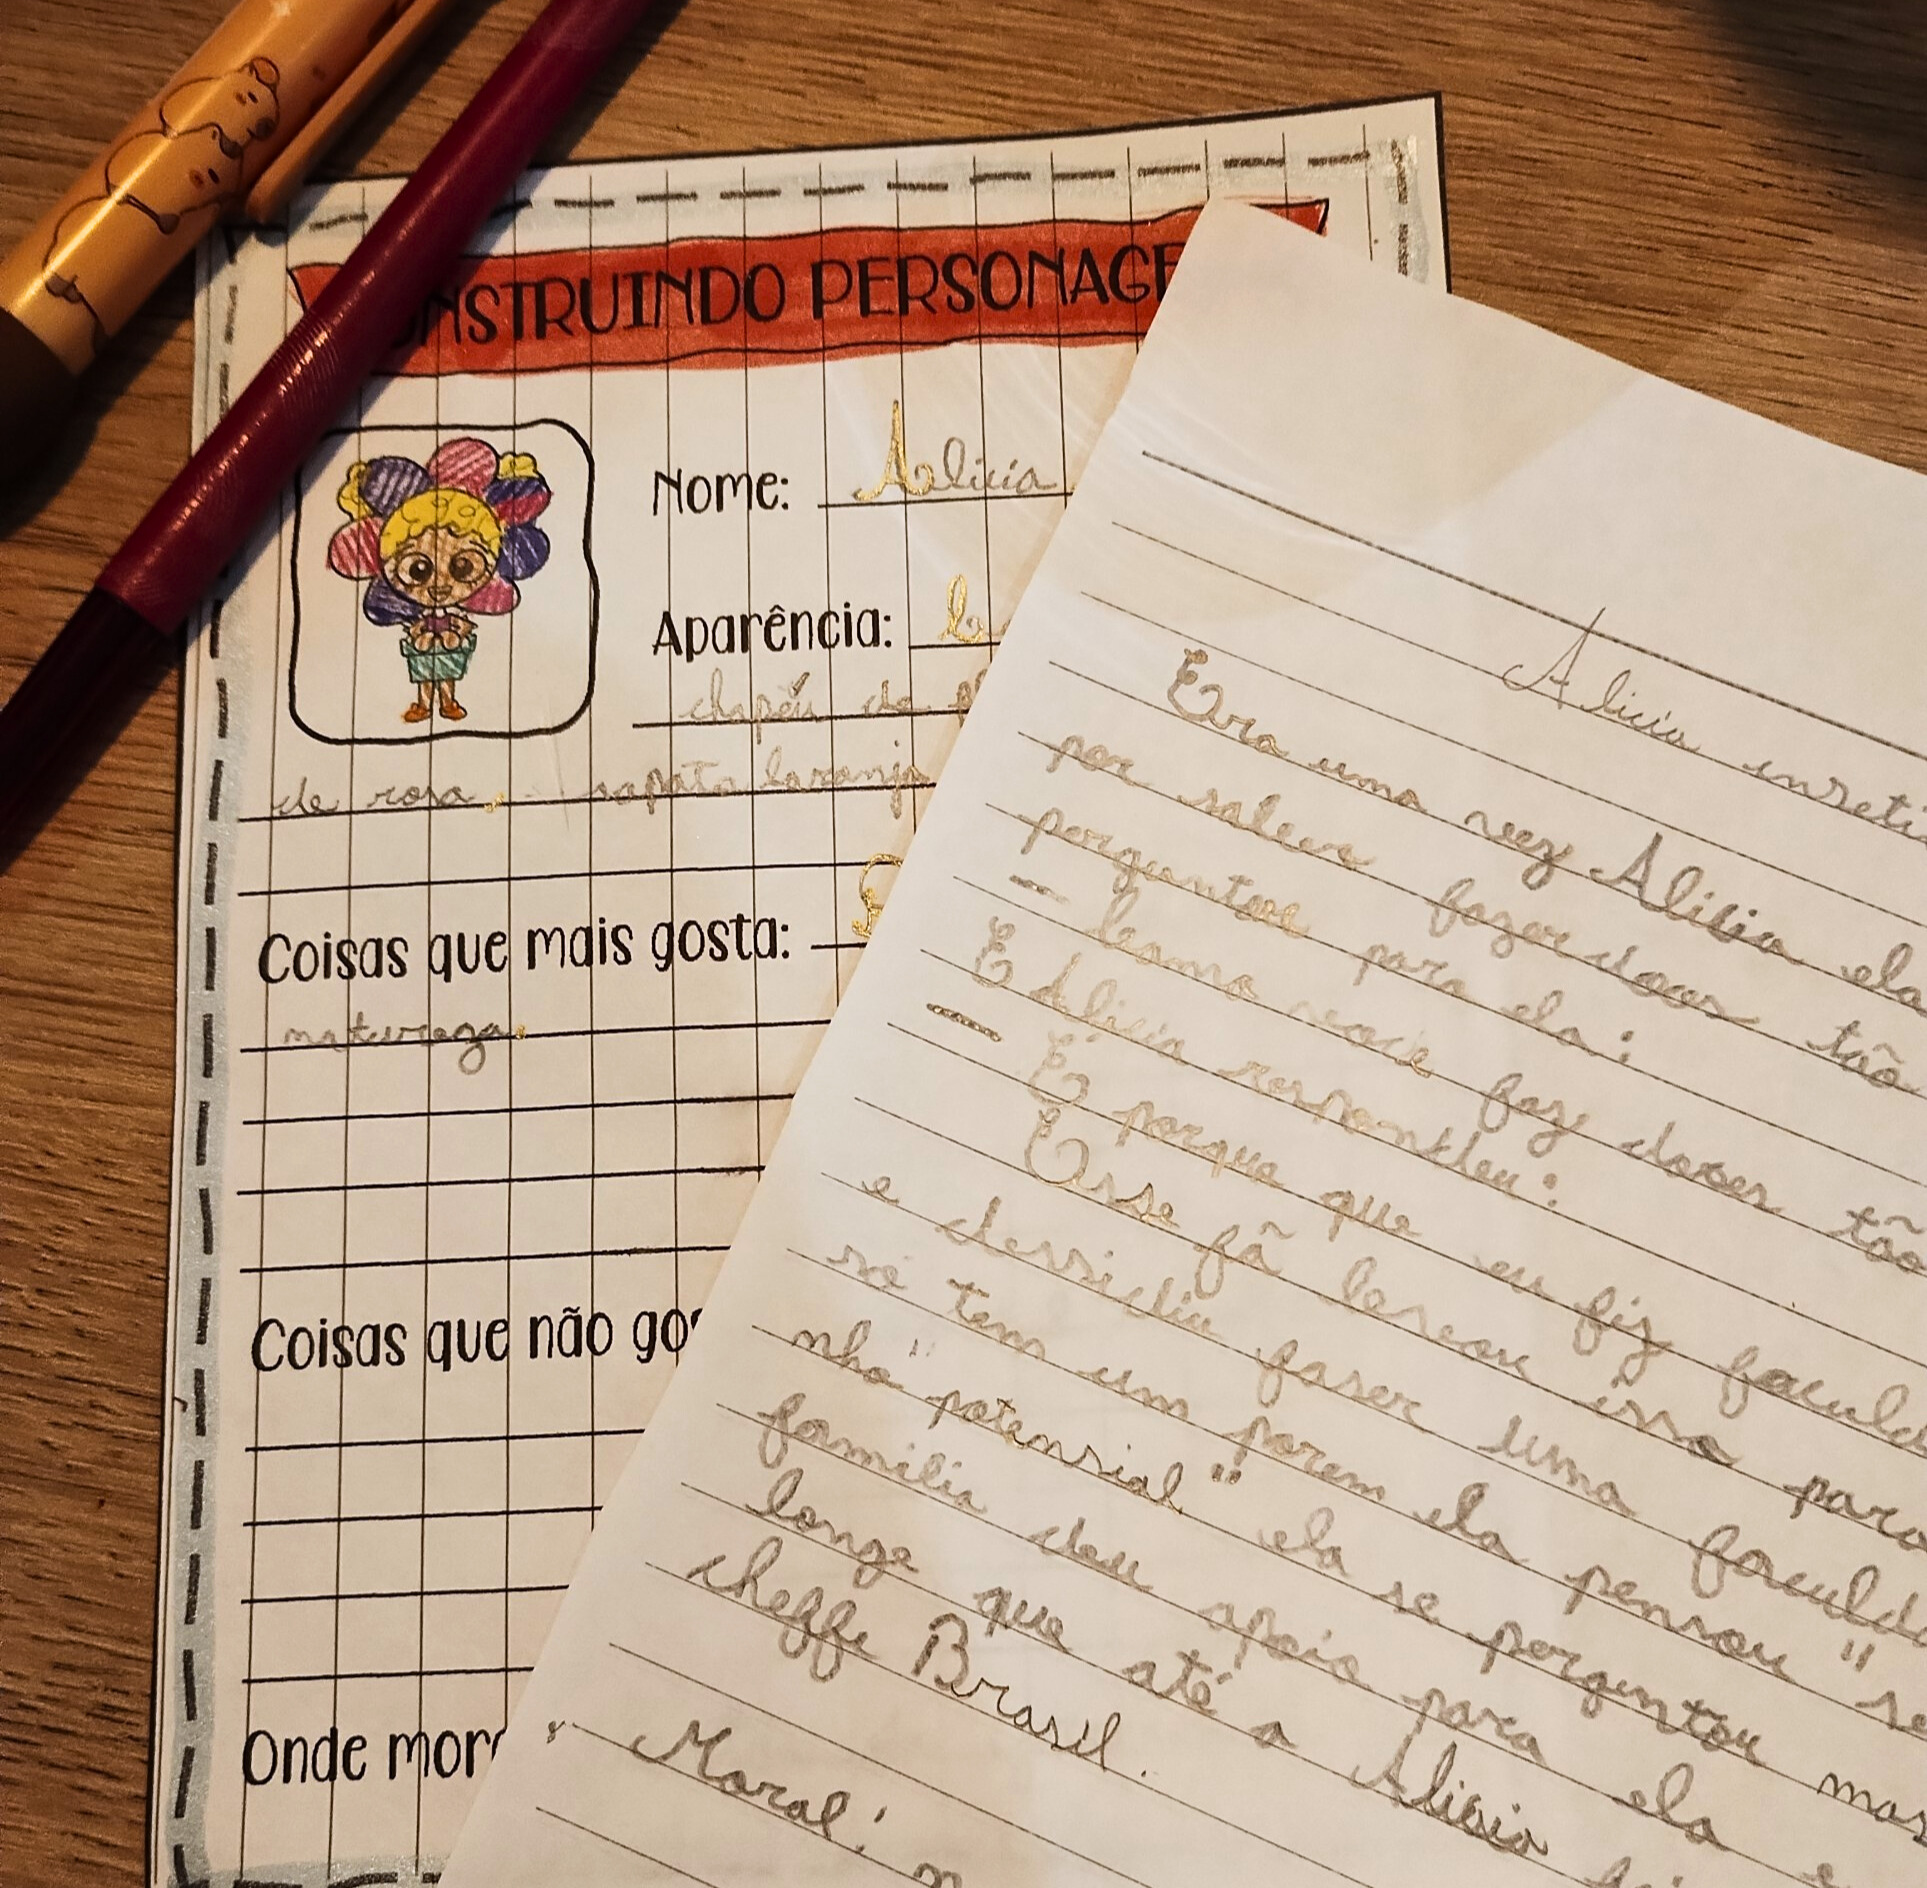 CONSTRUINDO PERSONAGE
Nome: Alicia
Aparência:
chapéu de
de rosa, sapato laranja
Coisas que mais gosta:
natureza.
Coisas que não go
Onde mor
Alicia
Era uma vez Alicia ela
por saber fazer doces tão
perguntou para ela:
– Como voce faz doces tão
E Alicia respondeu:
– É porque que eu fiz
Esse fã levou isso para
e dessidiu faser uma
só tem um porem ela pensou "
nho potensial" ela se perguntou mas
familia deu apoio para ela e
longe que até a Alicia
cheffe Brasil.
Moral: